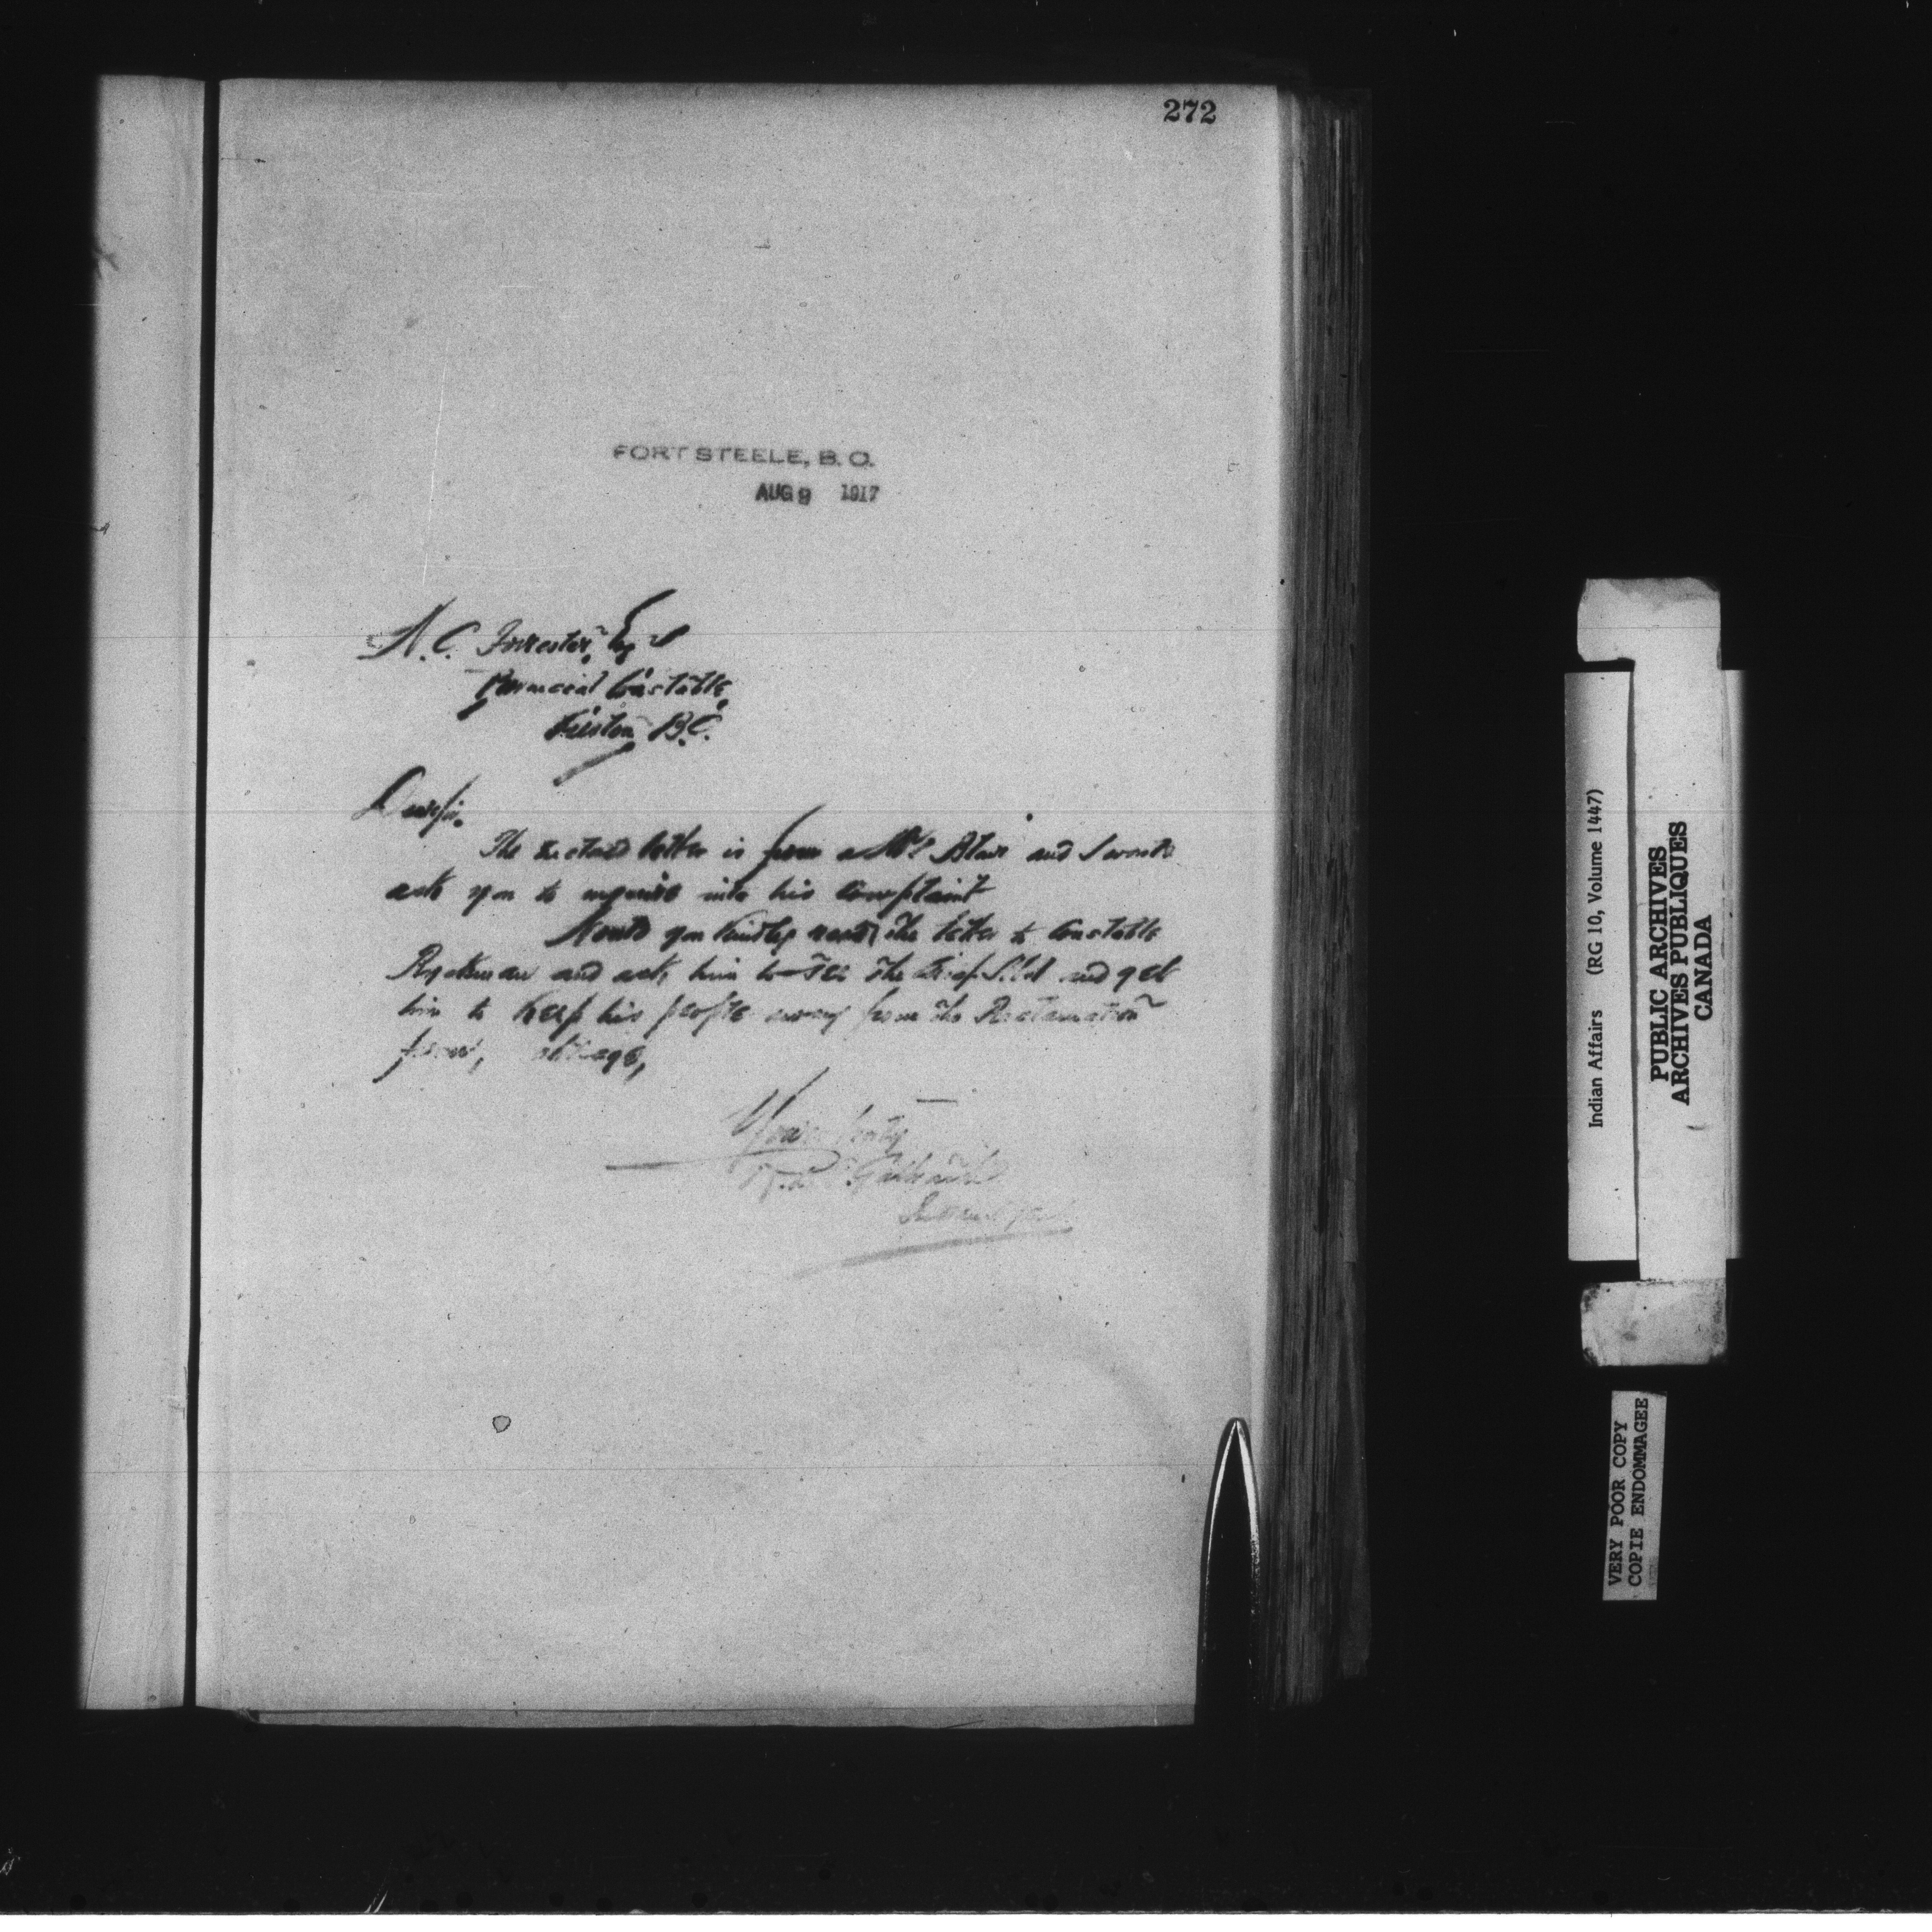 272
FORT STEELE, B.C.
AUG 9 1917
A.C. Forrester, Esq
Provincial Constable,
B.C.
Dear Sir.
The enclosed letter is from a Mr Blair and I would
ask you to inquire into his complaint
Would you kindly the letter to Constable
and ask him to see the Chief and get
him to keep his people away from the Reclamation
farm,
Yours truly
Galbraith
Indian Agent
Indian Affairs (RG 10, Volume 1447)
PUBLIC ARCHIVES
ARCHIVES PUBLIQUES
CANADA
VERY POOR COPY
COPIE ENDOMMAGEE